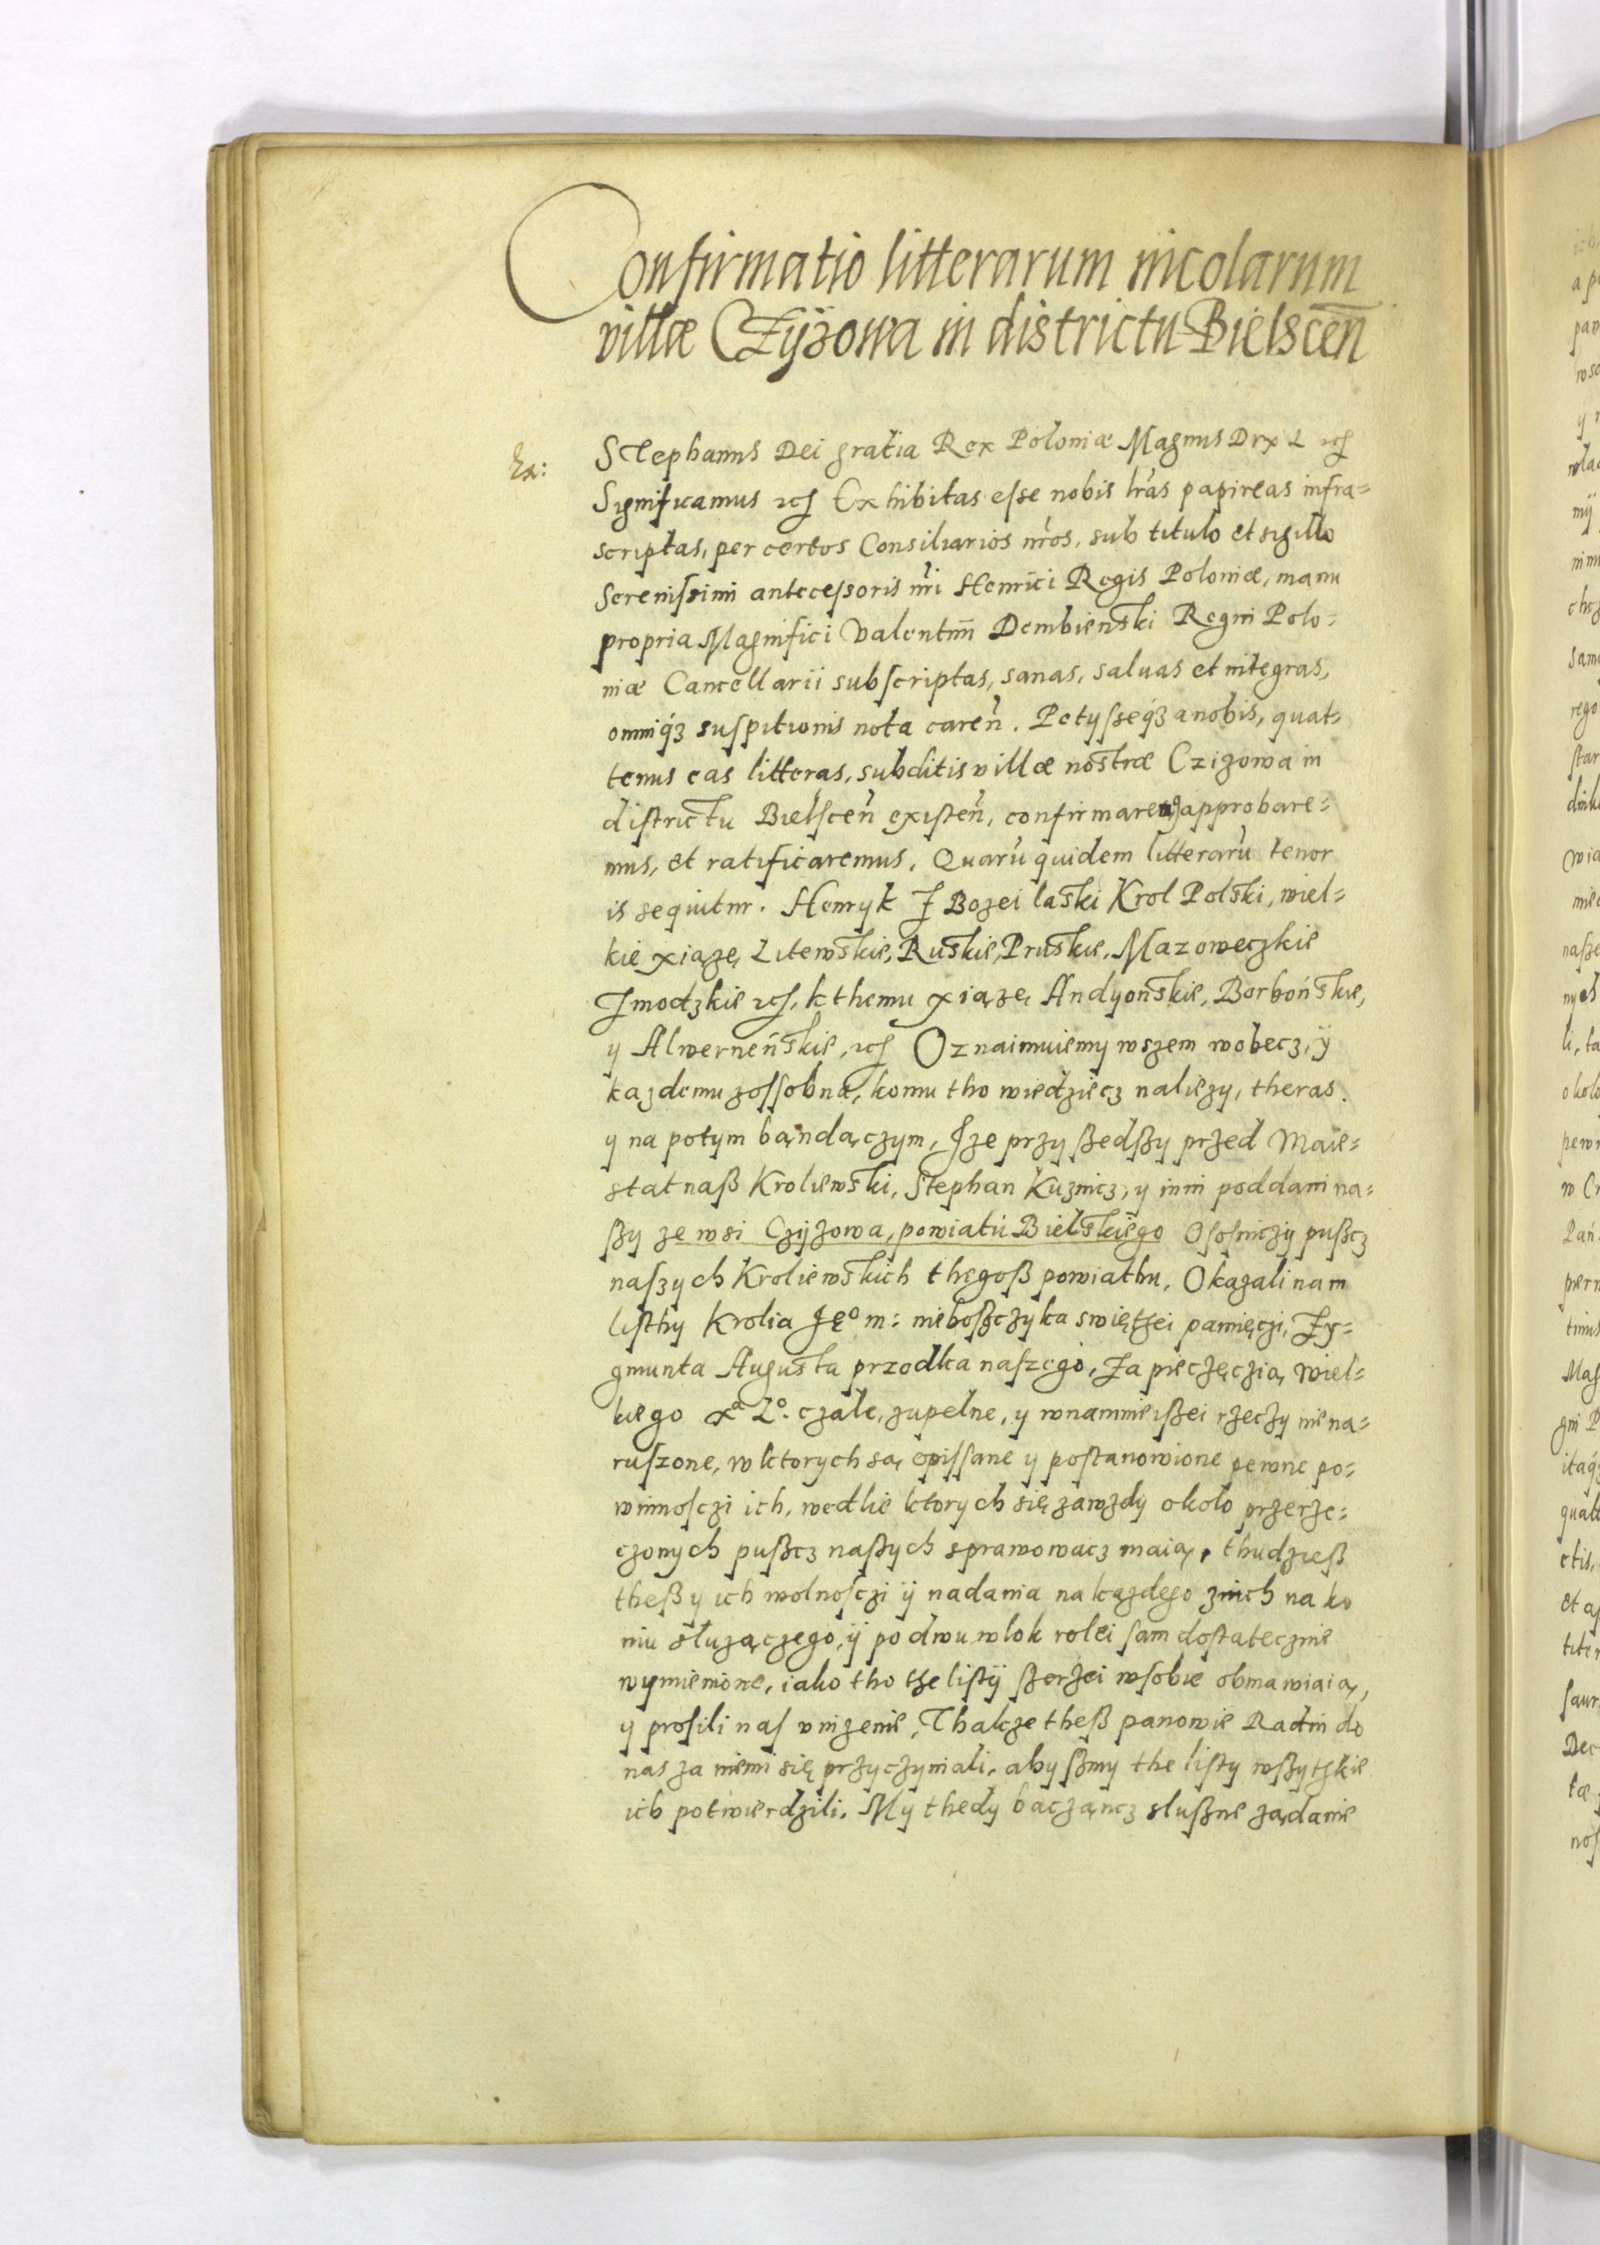 Confirmatio litterarum incolarum
villæ Czÿżowa in districtu Bielscen̄
Ex:
Stephanus Dei gratia Rex Poloniæ Magnus Dux L etc
Significamus etc Exhibitas esse nobis lr̃as papireas infra=
scriptas, per certos Consiliarios nr̃os, sub titulo et sigillo
Serenissimi antecessoris nr̃i Henrici Regis Poloniæ, manu
propria Magnifici Valentini Dembienski Regni Polo=
niæ Cancellarii subscriptas, sanas, saluas et integras,
omniq́ʒ suspitionis nota caren̄. Petysseq́ʒ a nobis, quat=
tenus eas litteras, subditis villæ nostræ Czizowa in
districtu Bielscen̄ existen̄, confirmaremus approbare=
mus, et ratificaremus. Quarũ quidem litterarũ tenor
is sequitur. Henryk Z Bozei laski Krol Polski, wiel=
kie xiążę Litewskie, Ruskie, Pruskie, Mazoweczkie
Zmodzkie etc, k themu xiążę Andyońskie, Borbońskie,
y Alwerneńskie, etc Oznaimuiemy wszem wobecz, ÿ
kazdemu zossobna, komu tho wiedziecz naliezy, theras.
y na potym bąndączym, Jze przyszedßy przed Maie=
stat naß Kroliewski, Stephan Kuznicz, y inni poddani na=
ßy ze wsi Czyżowa, powiatu Bielskiego Osoczniczy pußcz
naszych Kroliewskich thegoß powiathu, Okazali nam
listhy Krolia Jeº m: nieboßczyka swiętzei pamięczi, Zy=
gmunta Augusta przodka naszego, Za pieczęczią wiel=
kiego xª Lº. czałe, zupełne, y wnamnieißei rzeczy nie na=
ruszone, w ktorych są opissane y postanowione pewne po=
winnosczi ich, wedlie ktorych się zawzdy około przerze=
czonych pußcz naßych sprawowacz maią, thudzieß
theß y ich wolnosczi ÿ nadania na kazdego z nich na ko
niu służączego, ÿ po dwu wlok rolei sam dostatecznie
wymienione, iako tho the listÿ ßerzei wsobie obmawiaią,
y prosili nas vnizenie, Thakze theß panowie Radni do
nas za niemi się przyczyniali, abyßmy the listy wßytzkie
ich potwierdzili. My thedy bacząncz słußne żądanie